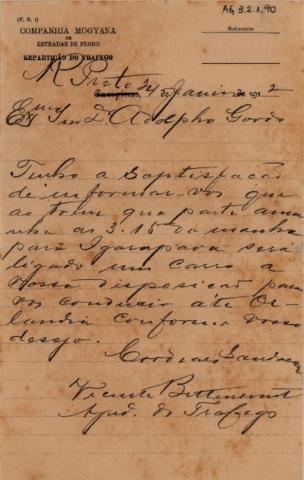 AG 3.2.1.90
(F. N. 1)
COMPANHIA MOGYANA
DE
ESTRADAS DE FERRO
REPARTIÇÃO DO TRAFEGO
Referencia
R. Preto 24 de Janeiro de 1912
Exmo Snr Dr Adolpho Gordo
Tenho a Saptisfação
de informar-vos que
ao trem que parte ama
nhã as 3.15 da manha
para Igarapava será
ligado um carro a
vossa disposição para
vos conduzir até Or-
landia conforme vosso
desejo.
Cordeaes Saudações
Vicente Bittencourt
Ajud. do Trafego